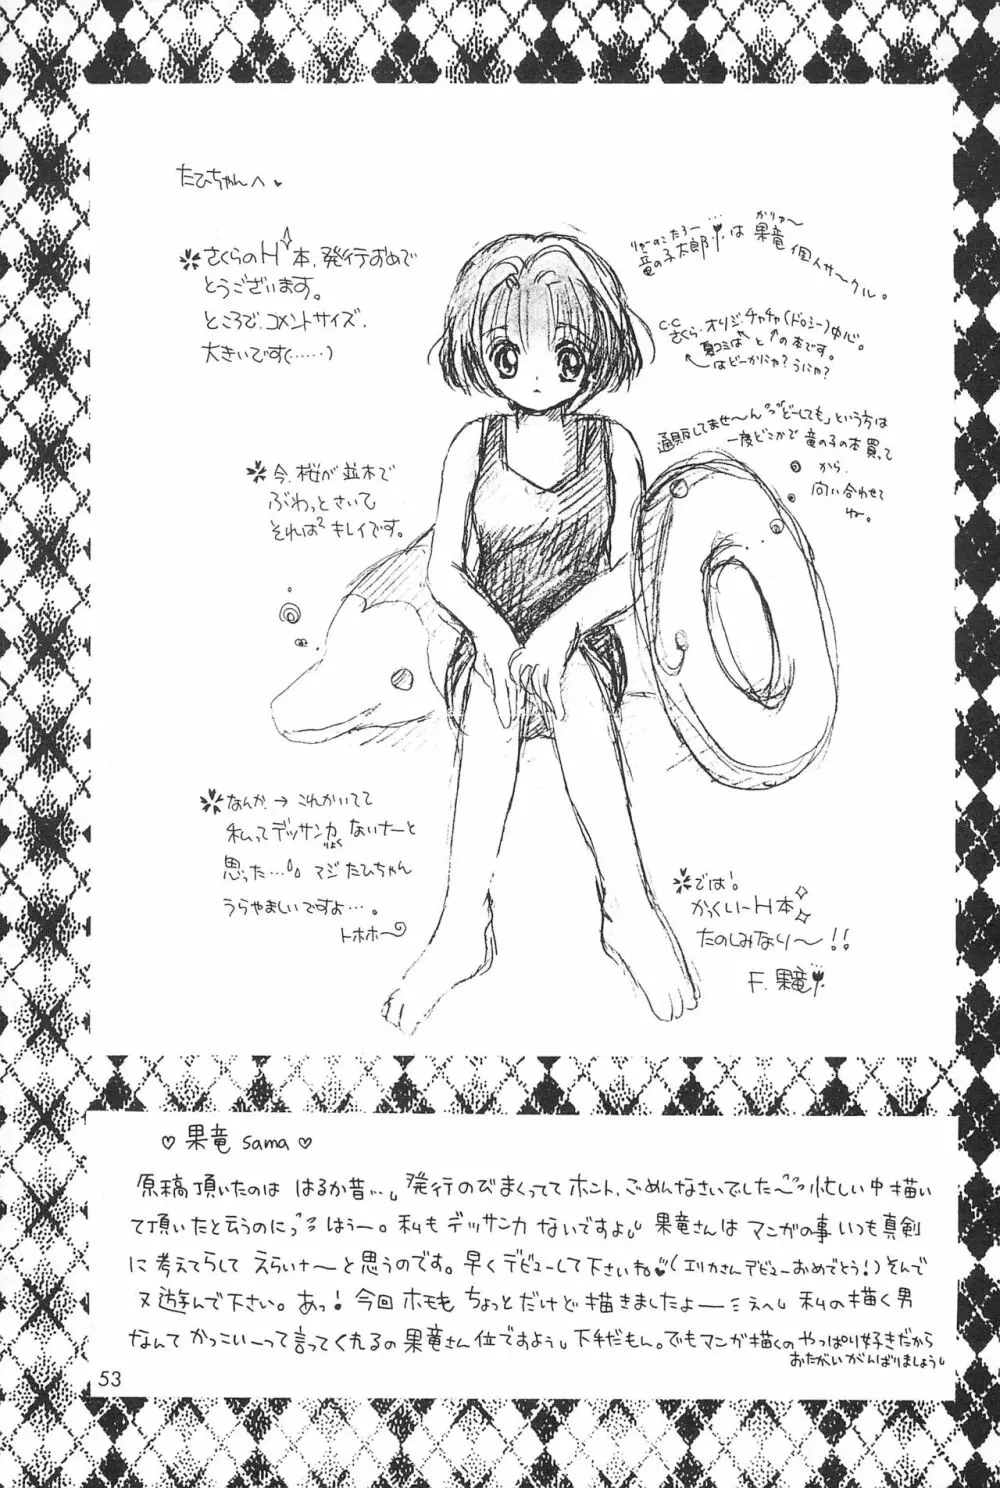 たひちゃんへ♥
さくらのH本、発行おめで
とうございます。
ところで、コメントサイズ、
大きいです(……)
竜の子太郎は果竜個人サークル。
りゅーのこたろー
かりゅ〜
C.C
さくら、オリジ、チャチャ(ドロシー)中心。
夏コミは↖と↑の本です。
はどーかにゃ?うにゃ?
通販してませ〜ん「どーしても」という方は
一度どこかで竜の子の本買って
から、
問い合わせて
ね。
今、桜が並木で
ぶわっとさいて
それは²キレイです。
なんか→これかいてて
私ってデッサン力ないナーと
りょく
思った…マジたひちゃん
うらやましいですよ…。
トホホ〜
では!
かっくいーH本
たのしみなり〜!!
F.果竜
♡果竜sama♡
原稿頂いたのははるか昔…、発行のびまくっててホント、ごめんなさいでした〜忙しい中描い
て頂いたと云うのに〃はうー。私もデッサン力ないですよ、果竜さんはマンガの事いつも真剣
に考えてらしてえらいナ〜と思うのです。早くデビューして下さいね♥(エリカさんデビューおめでとう!)そんで
又遊んで下さい。あっ!今回ホモもちょっとだけど描きましたよーミえへ、私の描く男
なんてかっこいーって言ってくれるの果竜さん位ですよう、下手だもん。でもマンガ描くのやっぱり好きだから
おたがいがんばりましょう、
53